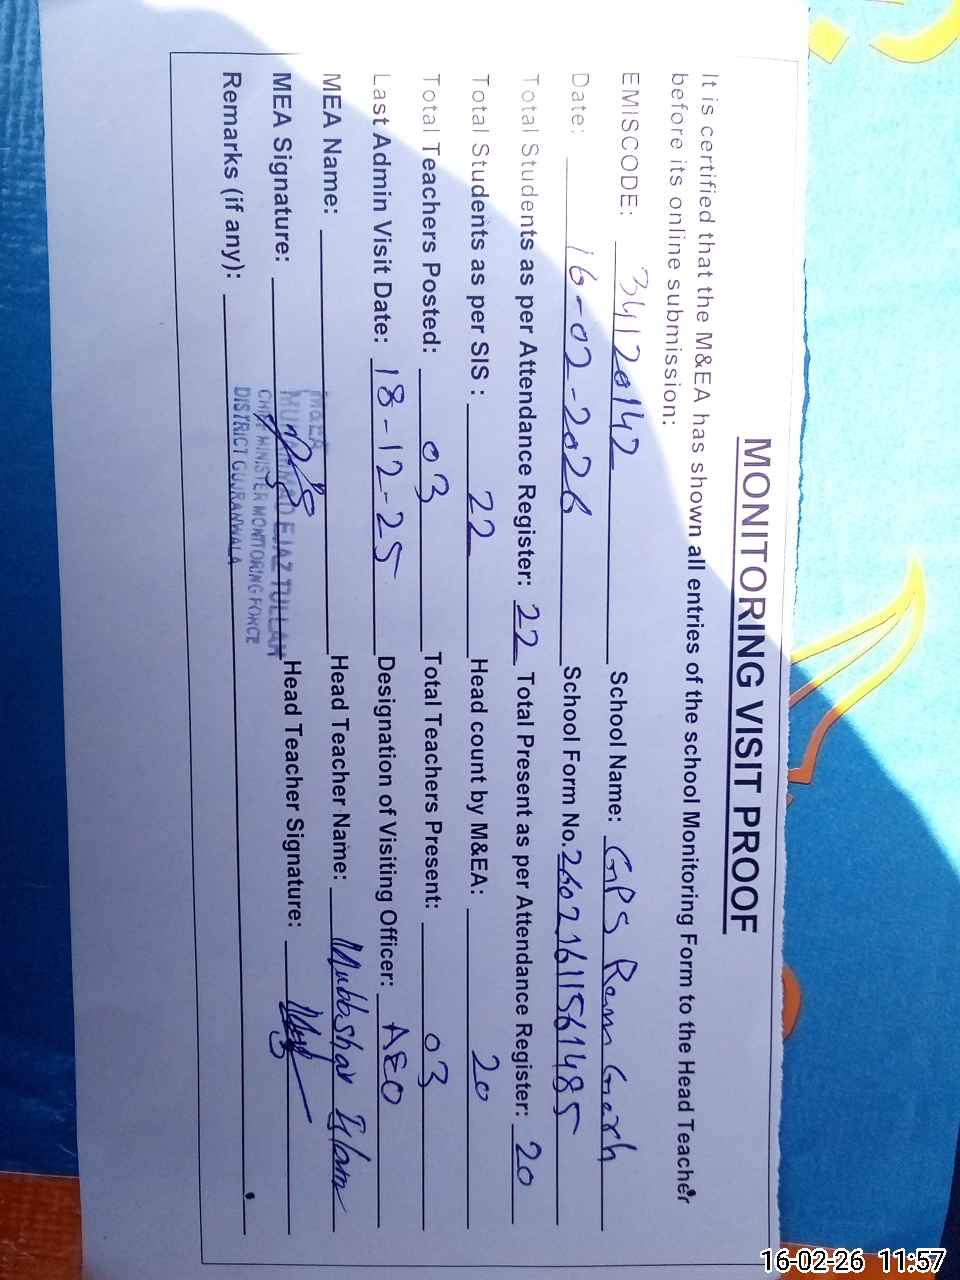 MONITORING VISIT PROOF
It is certified that the M&EA has shown all entries of the school Monitoring Form to the Head Teacher
before its online submission:
EMISCODE: 34120142 School Name: GPS Ram Garh
Date: 16-02-2026 School Form No. 26021611561485
Total Students as per Attendance Register: 22 Total Present as per Attendance Register: 20
Total Students as per SIS : 22 Head count by M&EA: 20
Total Teachers Posted: 03 Total Teachers Present: 03
Last Admin Visit Date: 18-12-25 Designation of Visiting Officer: AEO
MEA Name: Head Teacher Name: Mubbshar Islam
M&EA
MUHAMMAD EJAZ TULLAH
CHIEF MINISTER MONITORING FORCE
DISTRICT GUJRANWALA
MEA Signature: Head Teacher Signature:
Remarks (if any):
16-02-26 11:57